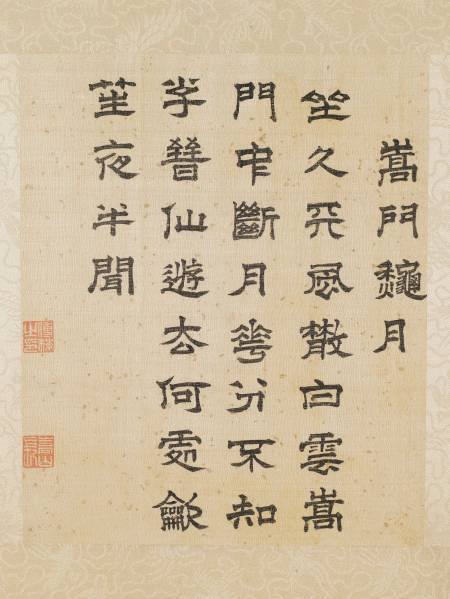 嵩門龝月
坐久天風散白雲嵩
門中斷月華分不知
子晉仙遊去何處龡
笙夜半聞